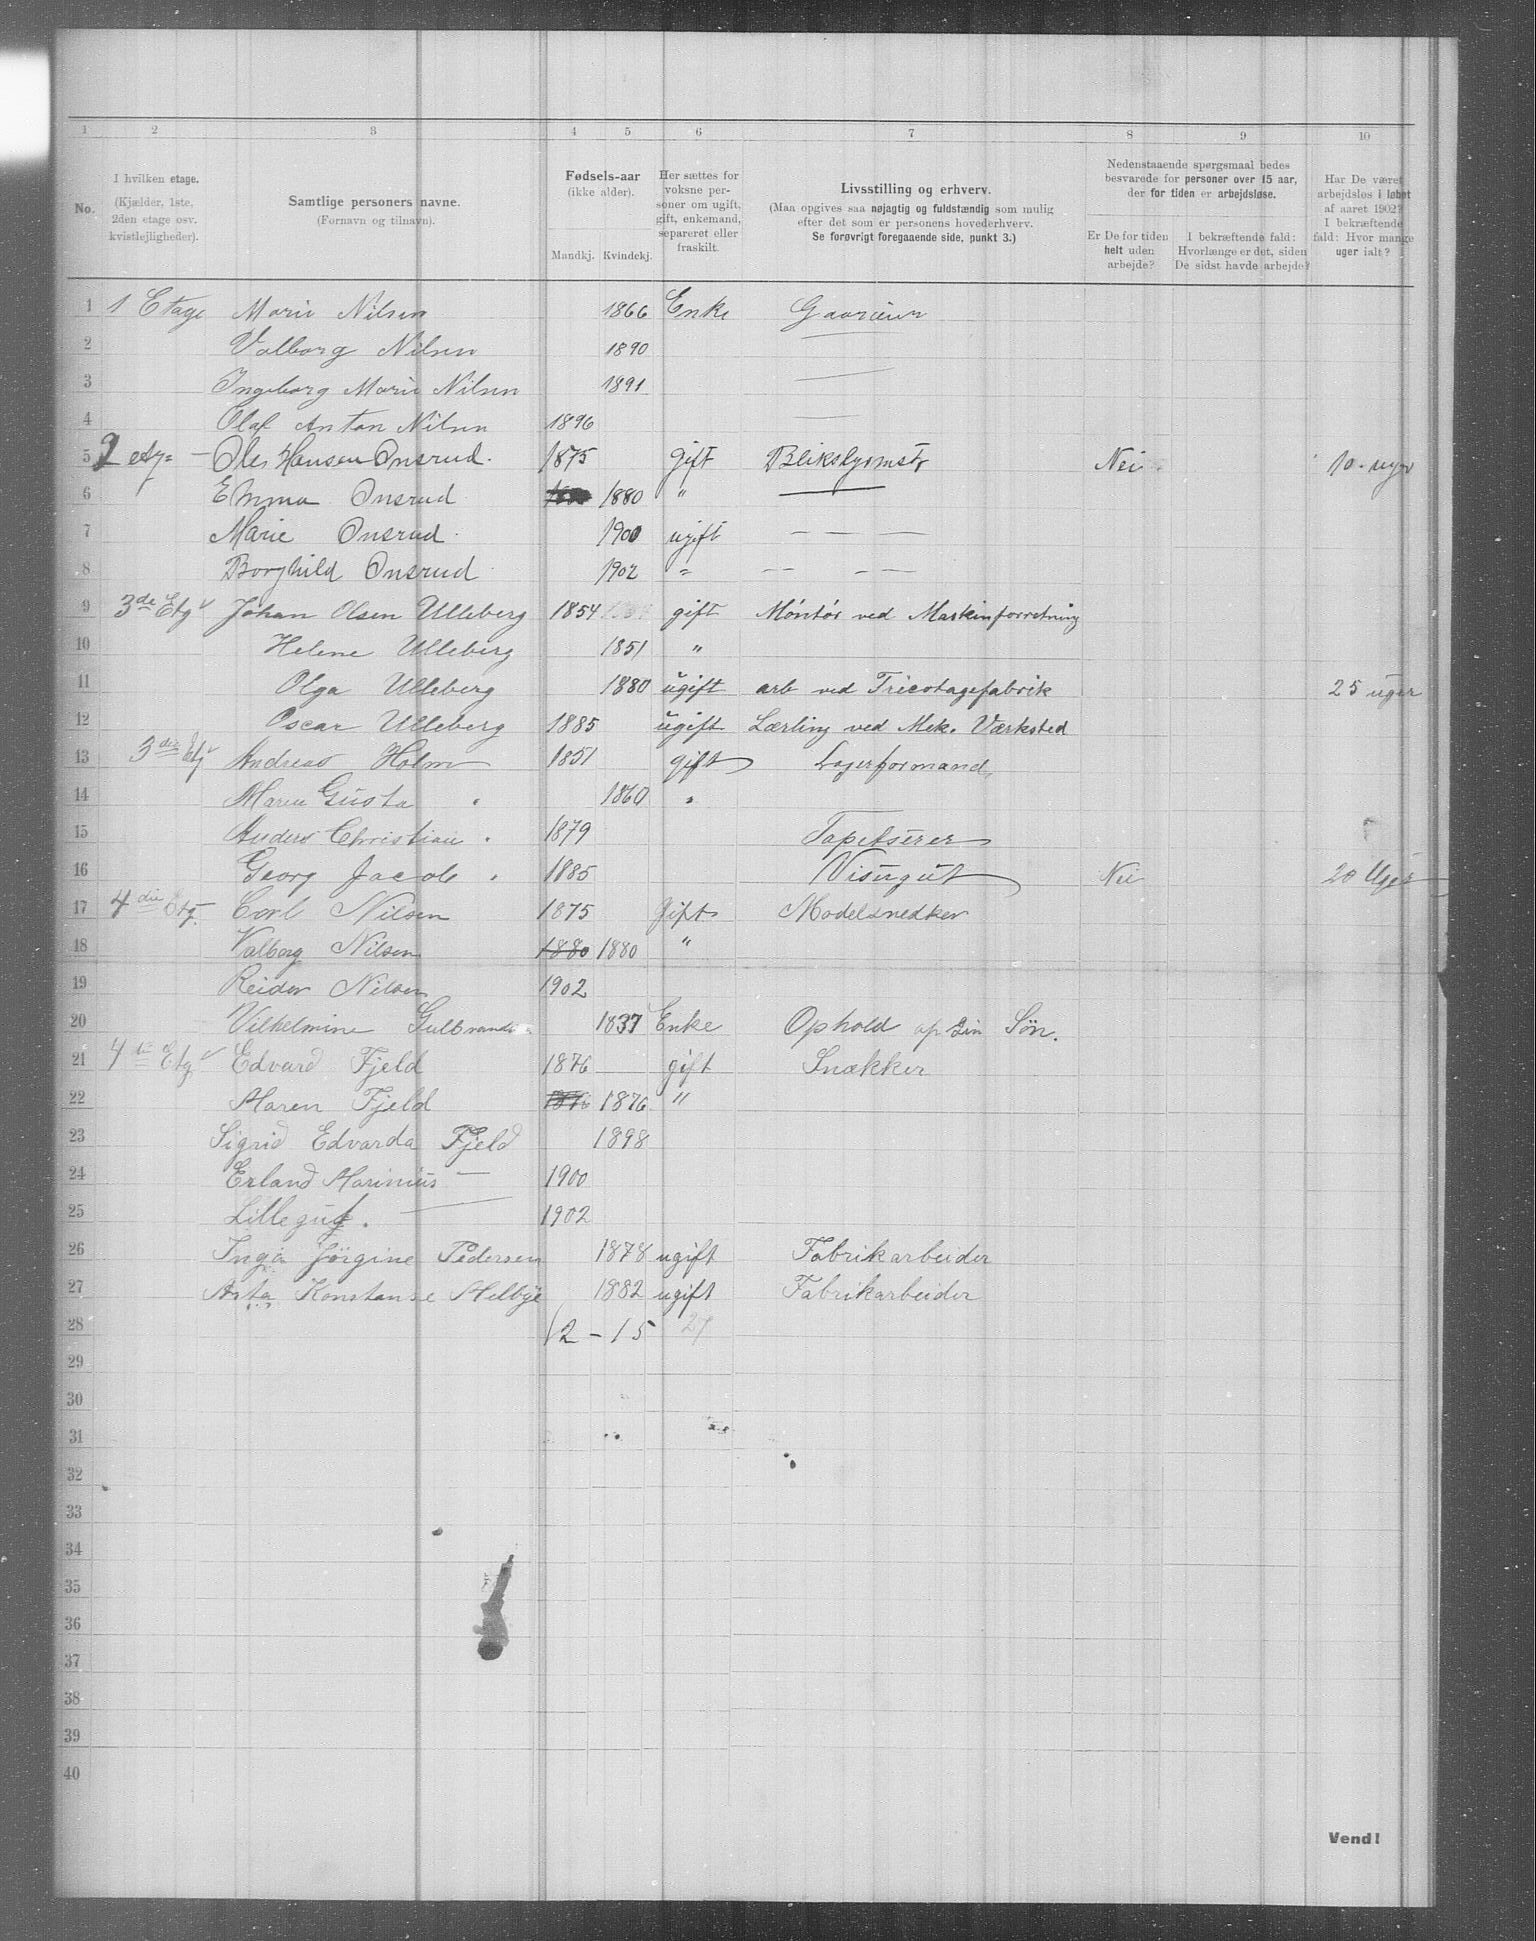 1 2 3 4 5 6 7 8 9 10
No.
I hvilken etage.
(Kjælder, 1ste,
2den etage osv.
kvistlejligheder).
Samtlige personers navne.
(Fornavn og tilnavn).
Fødsels-aar
(ikke alder).
Mandkj. Kvindekj.
Her sættes for
voksne per-
soner om ugift,
gift, enkemand,
separeret eller
fraskilt.
Livsstilling og erhverv.
(Maa opgives saa nøjagtig og fuldstændig som mulig
efter det som er personens hovederhverv.
Se forøvrigt foregaaende side, punkt 3.)
Nedenstaaende spørgsmaal bedes
besvarede for personer over 15 aar,
der for tiden er arbejdsløse.
Er De for tiden
helt uden
arbejde?
I bekræftende fald:
Hvorlænge er det, siden
De sidst havde arbejde?
Har De været
arbejdsløs i løbet
af aaret 1902?
I bekræftende
fald: Hvor mange
uger ialt?
1 1 Etage Marie Nilsen 1866 Enke
2 Valborg Nilsen 1890
3 Ingeborg Marie Nilsen 1891
4 Olaf Anton Nilsen 1896
5 2 etg= Ole Hansen Onsrud. 1875 gift Blikslygmstr Nei 10. uger
6 Emma Onsrud 1880 "
7 Marie Onsrud. 1900 ugift — — —
8 Borghild Onsrud 1902 = — — —
9 3de Etg Johan Olsen Ulleberg 1854 gift Móntór ved Maskinforretning
10 Helene Ulleberg 1851 "
11 Olga Ulleberg 1880 ugift arb ved Tricotagefabrik 25 uger
12 Oscar Ulleberg 1885 ugift Lærling ved Mek. Værksted
13 3die Etg Andreas Holm 1851 gift Lagerformand,
14 Maren Gusta " 1860 "
15 Anders Christian " 1879 Tapetserer
16 Georg Jacob " 1885 Visergut Nei 20 Uger
17 4die Etg. Carl Nilsen 1875 Gift Modelsnedker
18 Valborg Nilsen 1880 1880 "
19 Reidar Nilsen 1902
20 Vilhelmine Gulbrandsen 1837 Enke Ophold af sin Søn.
21 4de Etg. Edvard Fjeld 1876 gift Snækker
22 Maren Fjeld 1876 1876 "
23 Sigrid Edvarda Fjeld 1898
24 Erland Marinius — 1900
25 Lillegut. — 1902
26 Inga Jørgine Pedersen 1878 ugift Fabrikarbeider
27 Asta Konstanse Melbye 1882 ugift Fabrikarbeider
28 12 - 15 27
29
30
31
32
33
34
35
36
37
38
39
40
Vend!